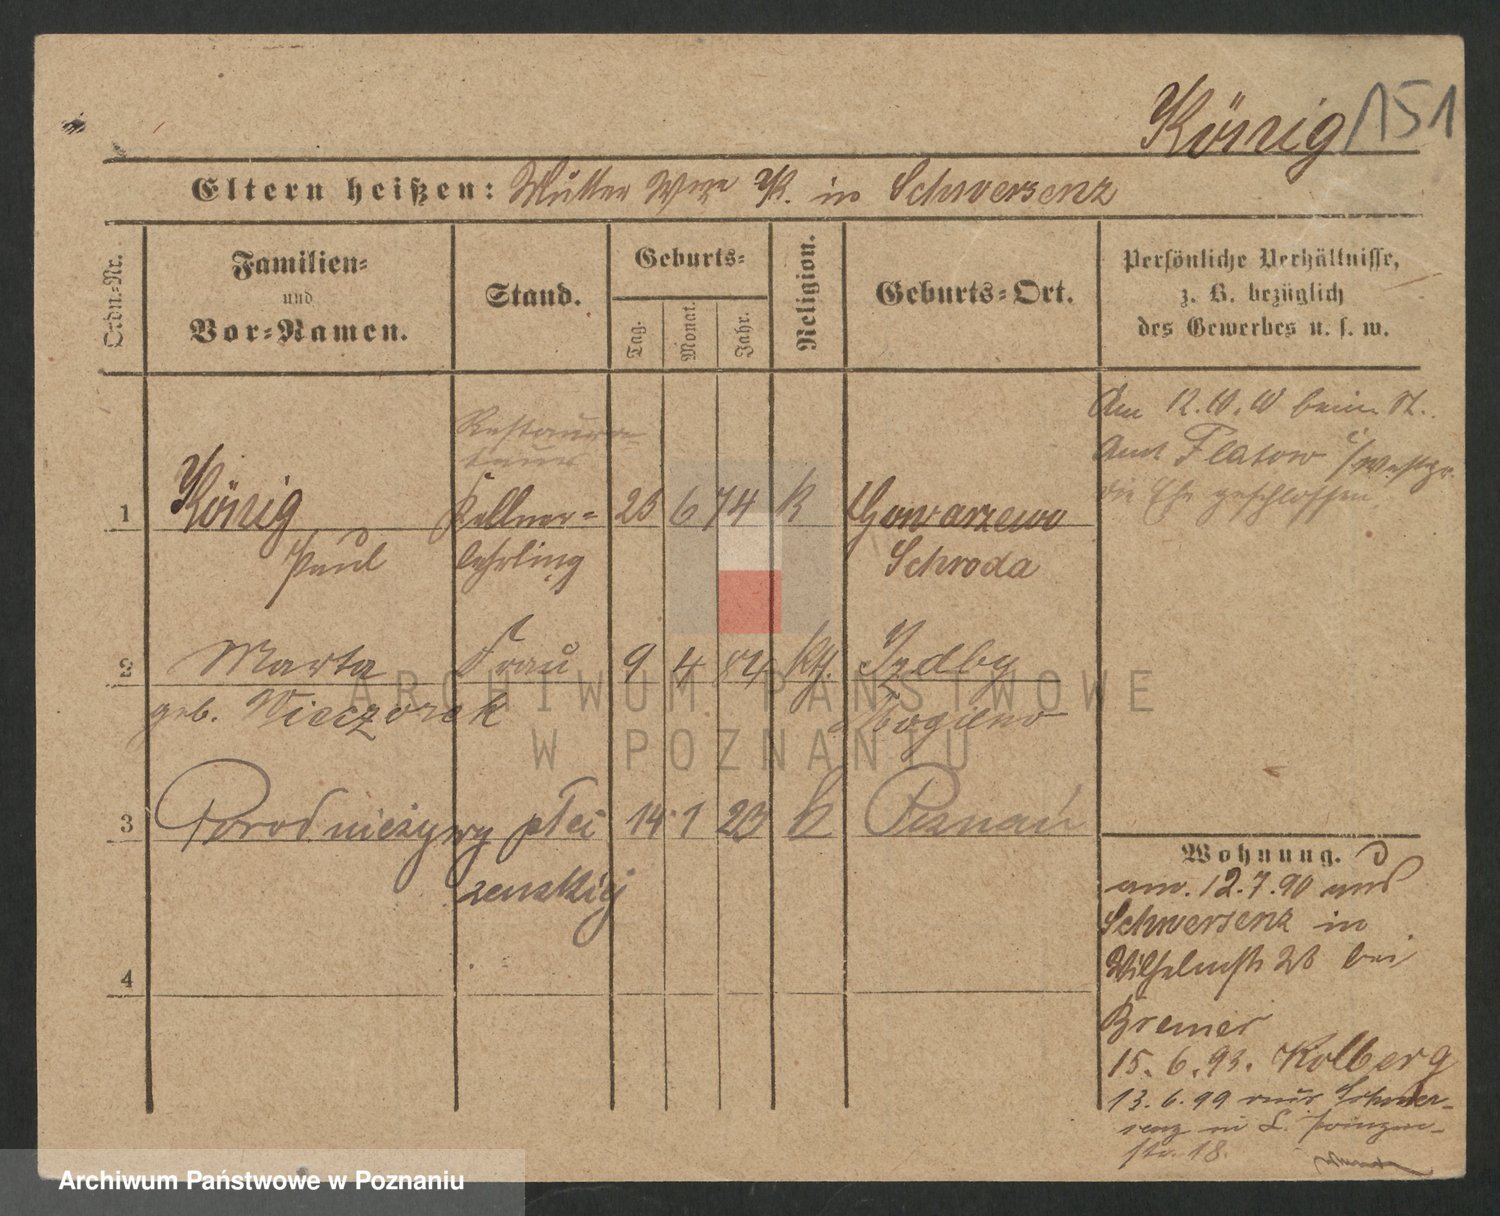 König 151
Eltern heißen: Mutter Wwe K. in Schwersenz
Ordn.-Nr.
Familien-
und
Vor-Namen.
Stand.
Geburts-
Tag.
Monat.
Jahr.
Religion.
Geburts-Ort.
Persönliche Verhältnisse,
z. B. bezüglich
des Gewerbes u. s. w.
Am 12.10.10 beim St.
Amt Flatow i/Westpr.
die Ehe geschlossen.
Restaura-
teur
1 König Kellner- 25 6 74 K Gowarzewo
Paul lehrling Schroda
2 Marta Frau 9 4 84 Kth. Izdby
geb. Wieczorek Mogilno
3 Poród nieżywy płci 14 1 23 k Poznań
żenskiej
4
Wohnung.
am 12.7.90 aus
Schwersenz in
Wilhelmstr 26 bei
Bremer
15.6.93. Kolberg
13.6.99 aus Schwer-
senz in
str. 18.
ARCHIWUM PAŃSTWOWE
W POZNANIU
Archiwum Państwowe w Poznaniu